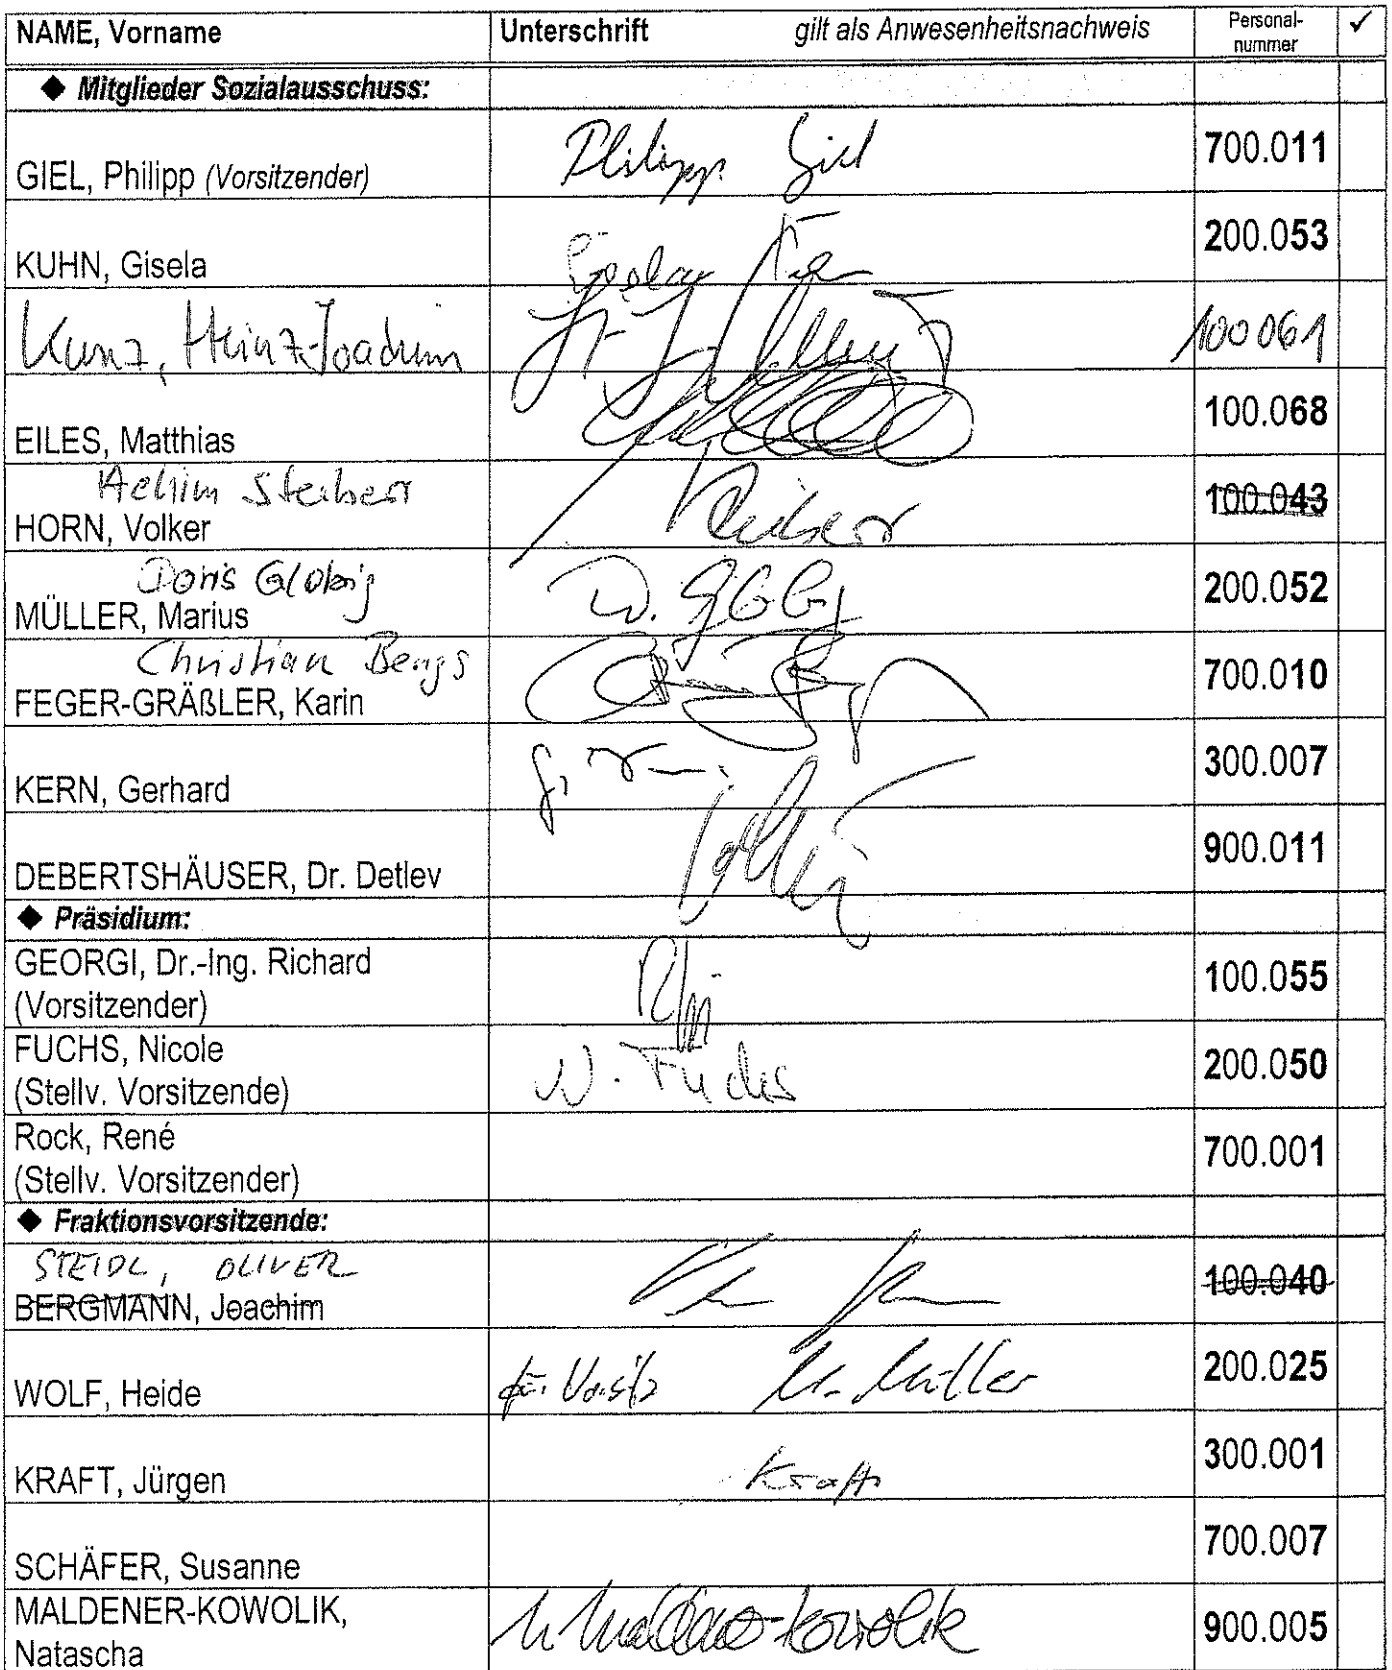 NAME, Vorname Unterschrift gilt als Anwesenheitsnachweis Personal-nummer ✓
◆ Mitglieder Sozialausschuss:
GIEL, Philipp (Vorsitzender) Philipp Giel 700.011
KUHN, Gisela Gisela 200.053
Kunz, Heinz-Joachim 100 061
EILES, Matthias 100.068
Achim Steiberr
HORN, Volker 100.043
Doris Globig
MÜLLER, Marius D. 200.052
Christian Bengs
FEGER-GRÄßLER, Karin 700.010
KERN, Gerhard 300.007
DEBERTSHÄUSER, Dr. Detlev 900.011
◆ Präsidium:
GEORGI, Dr.-Ing. Richard
(Vorsitzender) 100.055
FUCHS, Nicole
(Stellv. Vorsitzende) N. Fuchs 200.050
Rock, René
(Stellv. Vorsitzender) 700.001
◆ Fraktionsvorsitzende:
STEIDL, OLIVER
BERGMANN, Joachim 100.040
WOLF, Heide M. Müller 200.025
KRAFT, Jürgen Kraft 300.001
SCHÄFER, Susanne 700.007
MALDENER-KOWOLIK,
Natascha N. Maldener-Kowolik 900.005